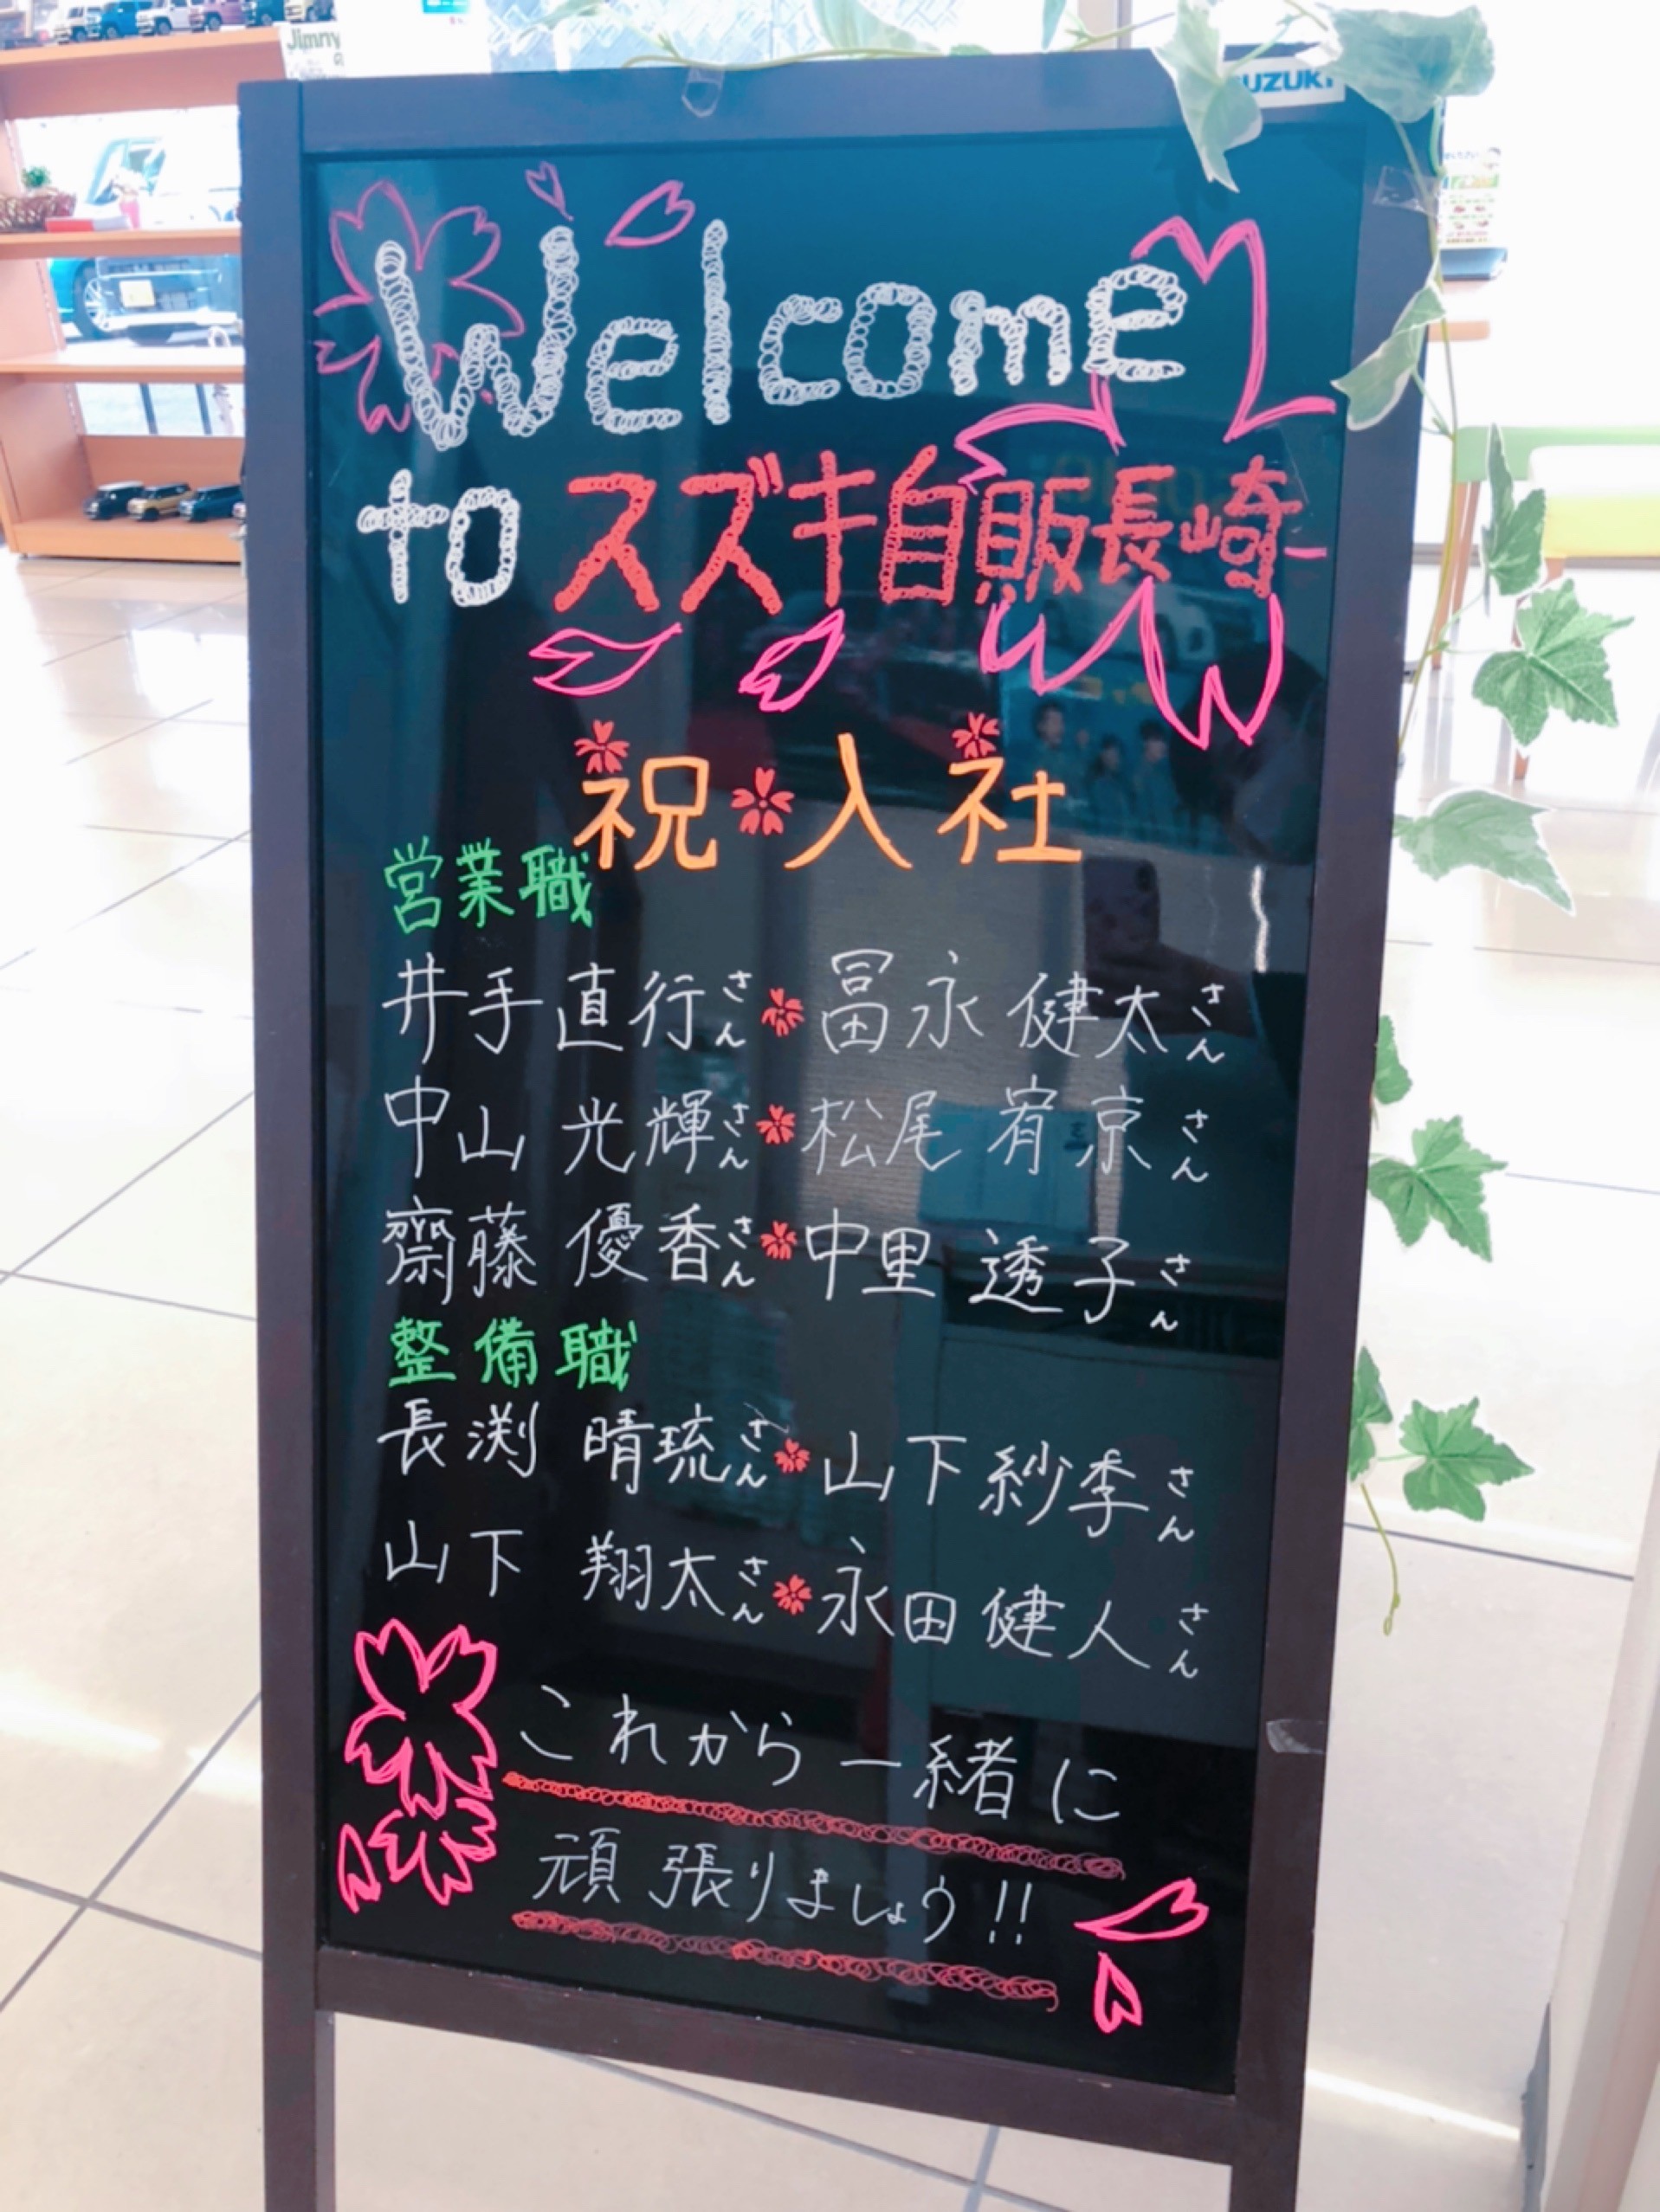 Jimny
SUZUKI
Welcome
to スズキ自販長崎
祝入社
営業職
井手 直行さん 冨永 健太さん
中山 光輝さん 松尾 宥京さん
齋藤 優香さん 中里 透子さん
整備職
長渕 晴琉さん 山下 紗季さん
山下 翔太さん 永田 健人さん
これから一緒に
頑張りましょう!!